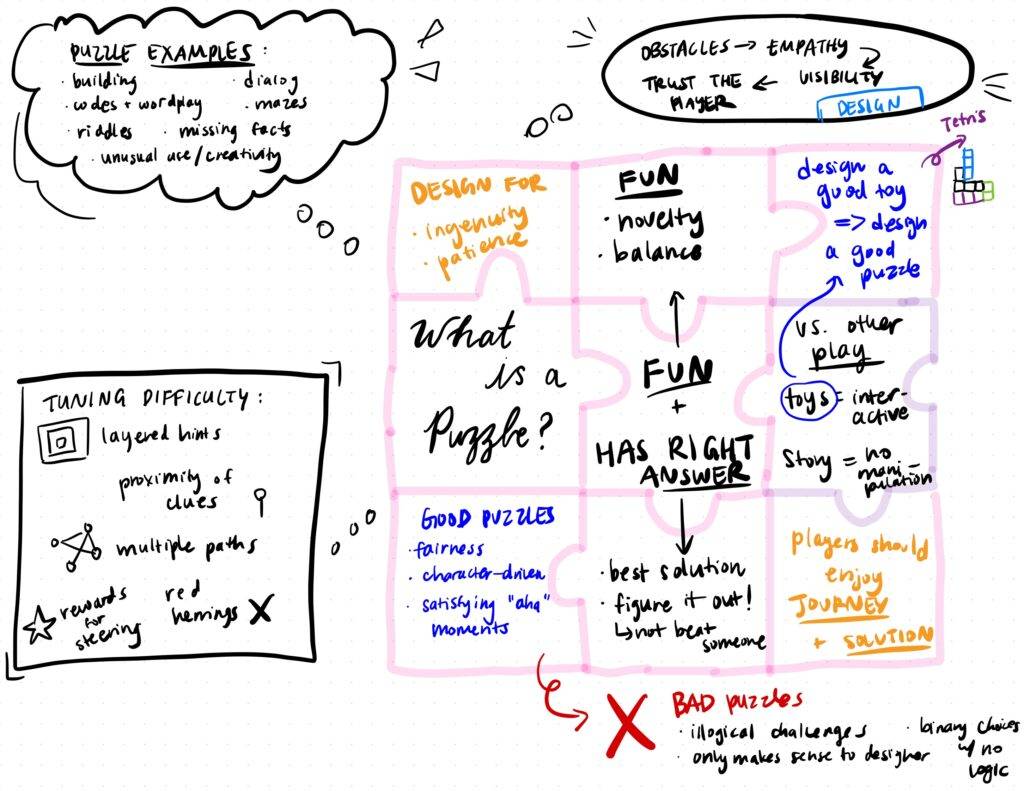 PUZZLE EXAMPLES:
· building
· dialog
· codes + wordplay
· mazes
· riddles
· missing facts
· unusual use/creativity
OBSTACLES → EMPATHY
TRUST THE ← VISIBILITY
PLAYER
DESIGN
Tetris
DESIGN FOR
· ingenuity
· patience
FUN
· novelty
· balance
design a
good toy
=> design
a good
puzzle
What
is a
Puzzle?
FUN
+
HAS RIGHT
ANSWER
vs. other
play
toys = inter-
active
Story = no
mani-
pulation
TUNING DIFFICULTY:
layered hints
proximity of
clues
multiple paths
rewards
for
steering
red
herrings
GOOD PUZZLES
· fairness
· character-driven
· satisfying "aha"
moments
· best solution
· figure it out!
↳ not beat
someone
players should
enjoy
JOURNEY
+ SOLUTION
BAD puzzles
· illogical challenges
· only makes sense to designer
· binary choices
w/ no
logic